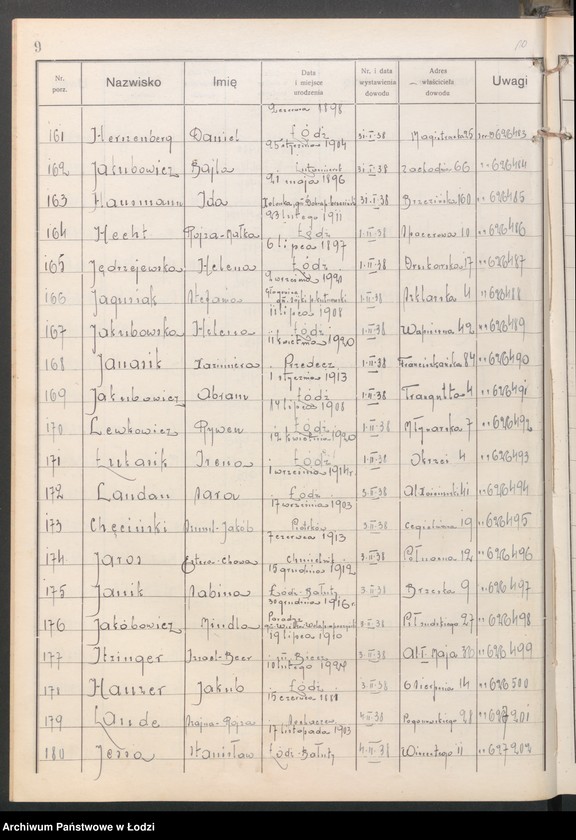 9
Nr. porz. Nazwisko Imię Data i miejsce urodzenia Nr. i data wystawienia dowodu Adres właściciela dowodu Uwagi
161 Herszenberg Daniel Łódź 31·I·38 626483
25 stycznia 1904
162 Jakubowicz Bajla 31·I·38 Zachodnia 66 " " 626484
21 maja 1896
163 Hausmann Ida 31·I·38 Brzezińska 160 " " 626485
23 lutego 1911
164 Hecht Rojza-Małka Łódź 1·II·38 Spacerowa 10 " " 626486
6 lipca 1897
165 Jędrzejewska Helena Łódź 1·II·38 Drukarska 17 " " 626487
166 Stefania 1·II·38 Szklarska 4 " " 626488
11 lipca 1908
167 Jakubowska Helena Łódź 1·II·38 Wapienna 42 " " 626489
11 kwietnia 1920
168 Janasik Kazimiera Przedecz 1·II·38 Franciszkańska 84 " " 626490
1 stycznia 1913
169 Jakubowicz Abram Łódź 1·II·38 Traugutta 4 " " 626491
14 lipca 1908
170 Lewkowicz Rywen Łódź 1·II·38 Młynarska 7 " " 626492
12 kwietnia 1920
171 Łukasik Irena Łódź 1·II·38 Okrzei 4 " " 626493
1 września 1914 r.
172 Landau Sara Łódź 3·II·38 " " 626494
17 września 1903
173 Chęciński Izrael-Jakób Piotrków 3·II·38 Cegielniana 19 " " 626495
7 czerwca 1913
174 Jaros Estera-Chawa Chmielnik 3·II·38 Północna 12 " " 626496
15 grudnia 1912
175 Janik Sabina Łódź-Bałuty 3·II·38 Brzeska 9 " " 626497
30 grudnia 1916 r.
176 Jakóbowicz Mindla 3·II·38 Piłsudskiego 27 " " 626498
19 lipca 1910
177 Itzinger Israel-Beer 3·II·38 Al I Maja " " 626499
10 lutego 1924
178 Hauzer Jakub Łódź 3·II·38 6 Sierpnia 14 " " 626500
15 czerwca 1888
179 Lande Rojza 4·II·38 Pogonowskiego 28 " " 627201
17 listopada 1903
180 Jessa Stanisław Łódź-Bałuty 4·II·38 11 " " 627202
Archiwum Państwowe w Łodzi